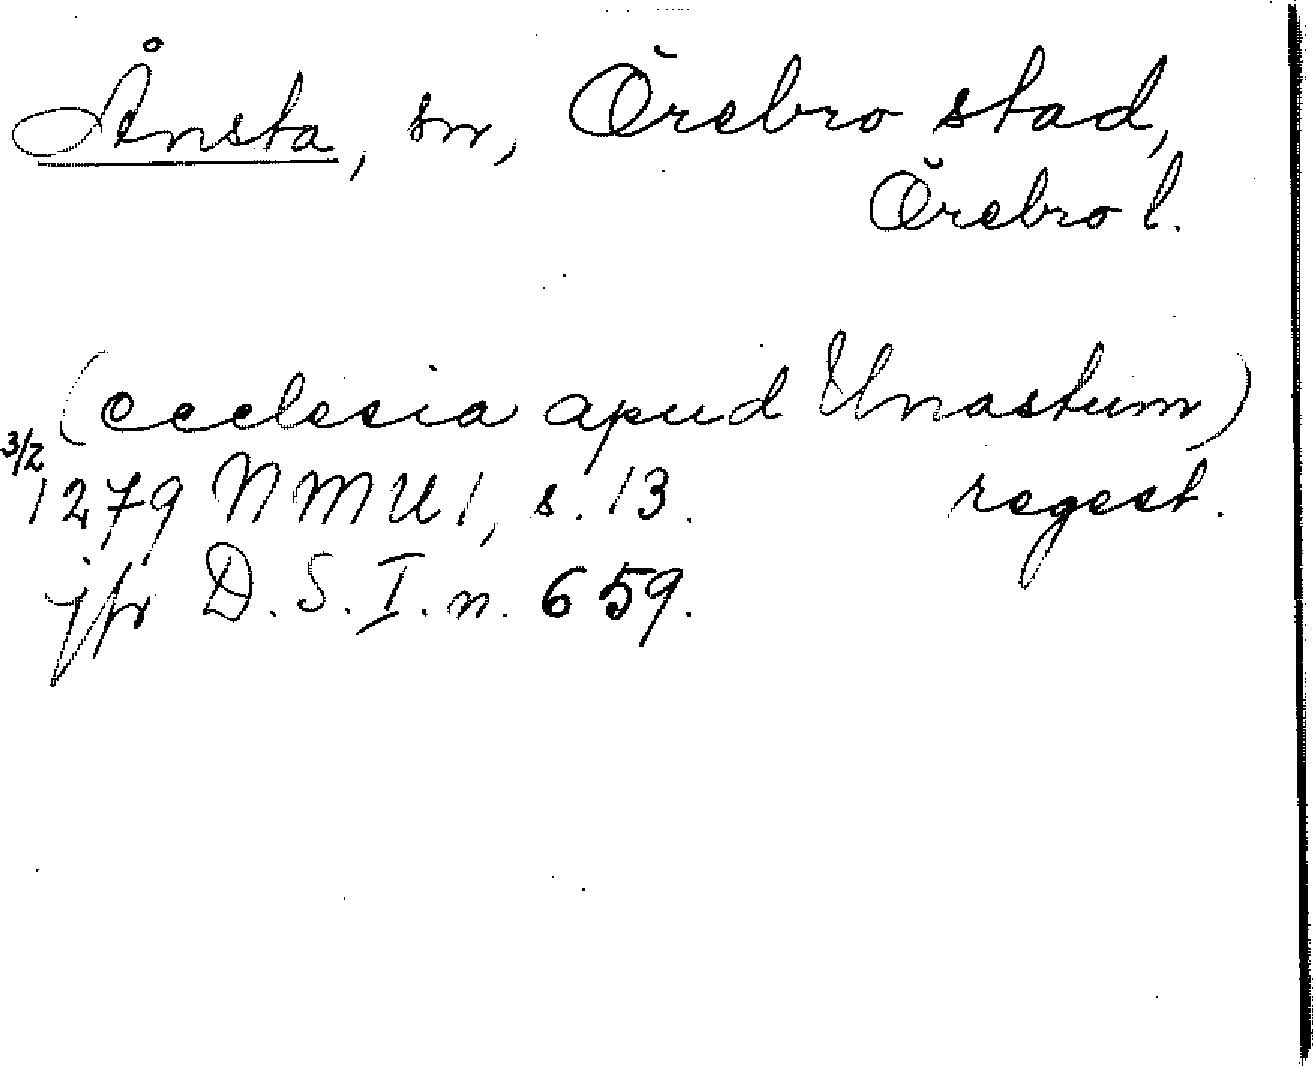 Ånsta, sn, Örebro stad,
Örebro l.
(ecclesia apud Unastum)
3/2
1279 NMU 1, s. 13. regest.
jfr D.S. I. n. 659.